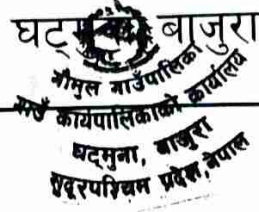 घट् बाजुरा
गौमुल गाउँपालिका
गाउँ कार्यपालिकाको कार्यालय
घट्मुना, बाजुरा
सुदूरपश्चिम प्रदेश, नेपाल